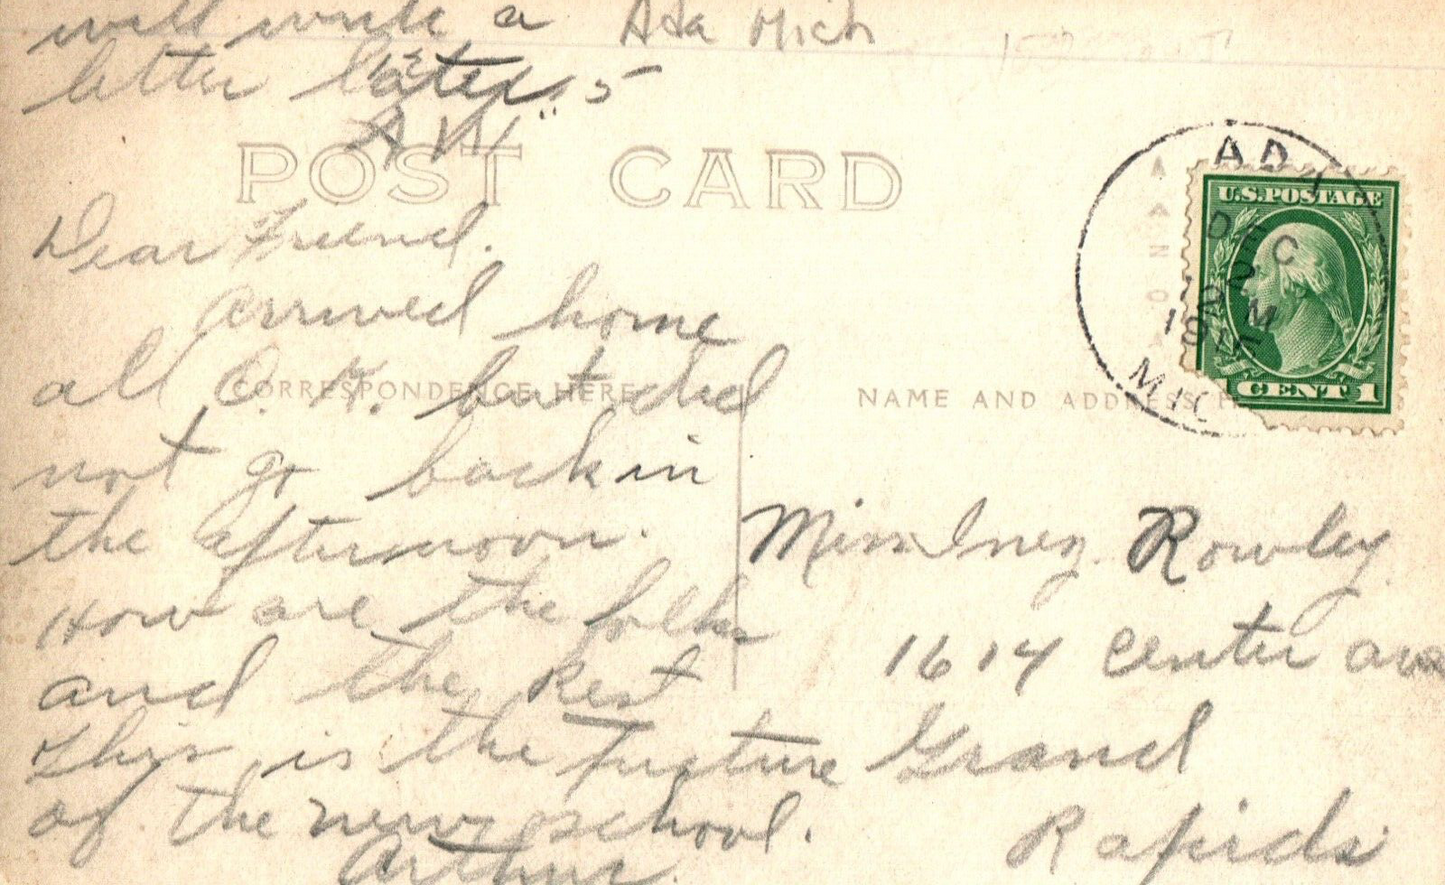 will write a Ada Mich
letter later
A W
POST CARD
ADA
DEC
2
M
MICH
U.S.POSTAGE
1 CENT 1
Dear Friend.
arrived home
all O. K. but did
CORRESPONDENCE HERE
NAME AND ADDRESS H
not go back in
the afternoon.
How are the folks
and the Rest
This is the Picture
of the new school.
Arthur.
Miss Inez Rowley
1614 Center ave
Grand
Rapids